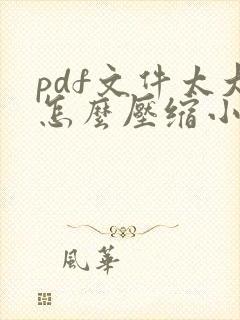 pdf文件太大
怎麼壓縮小
風華